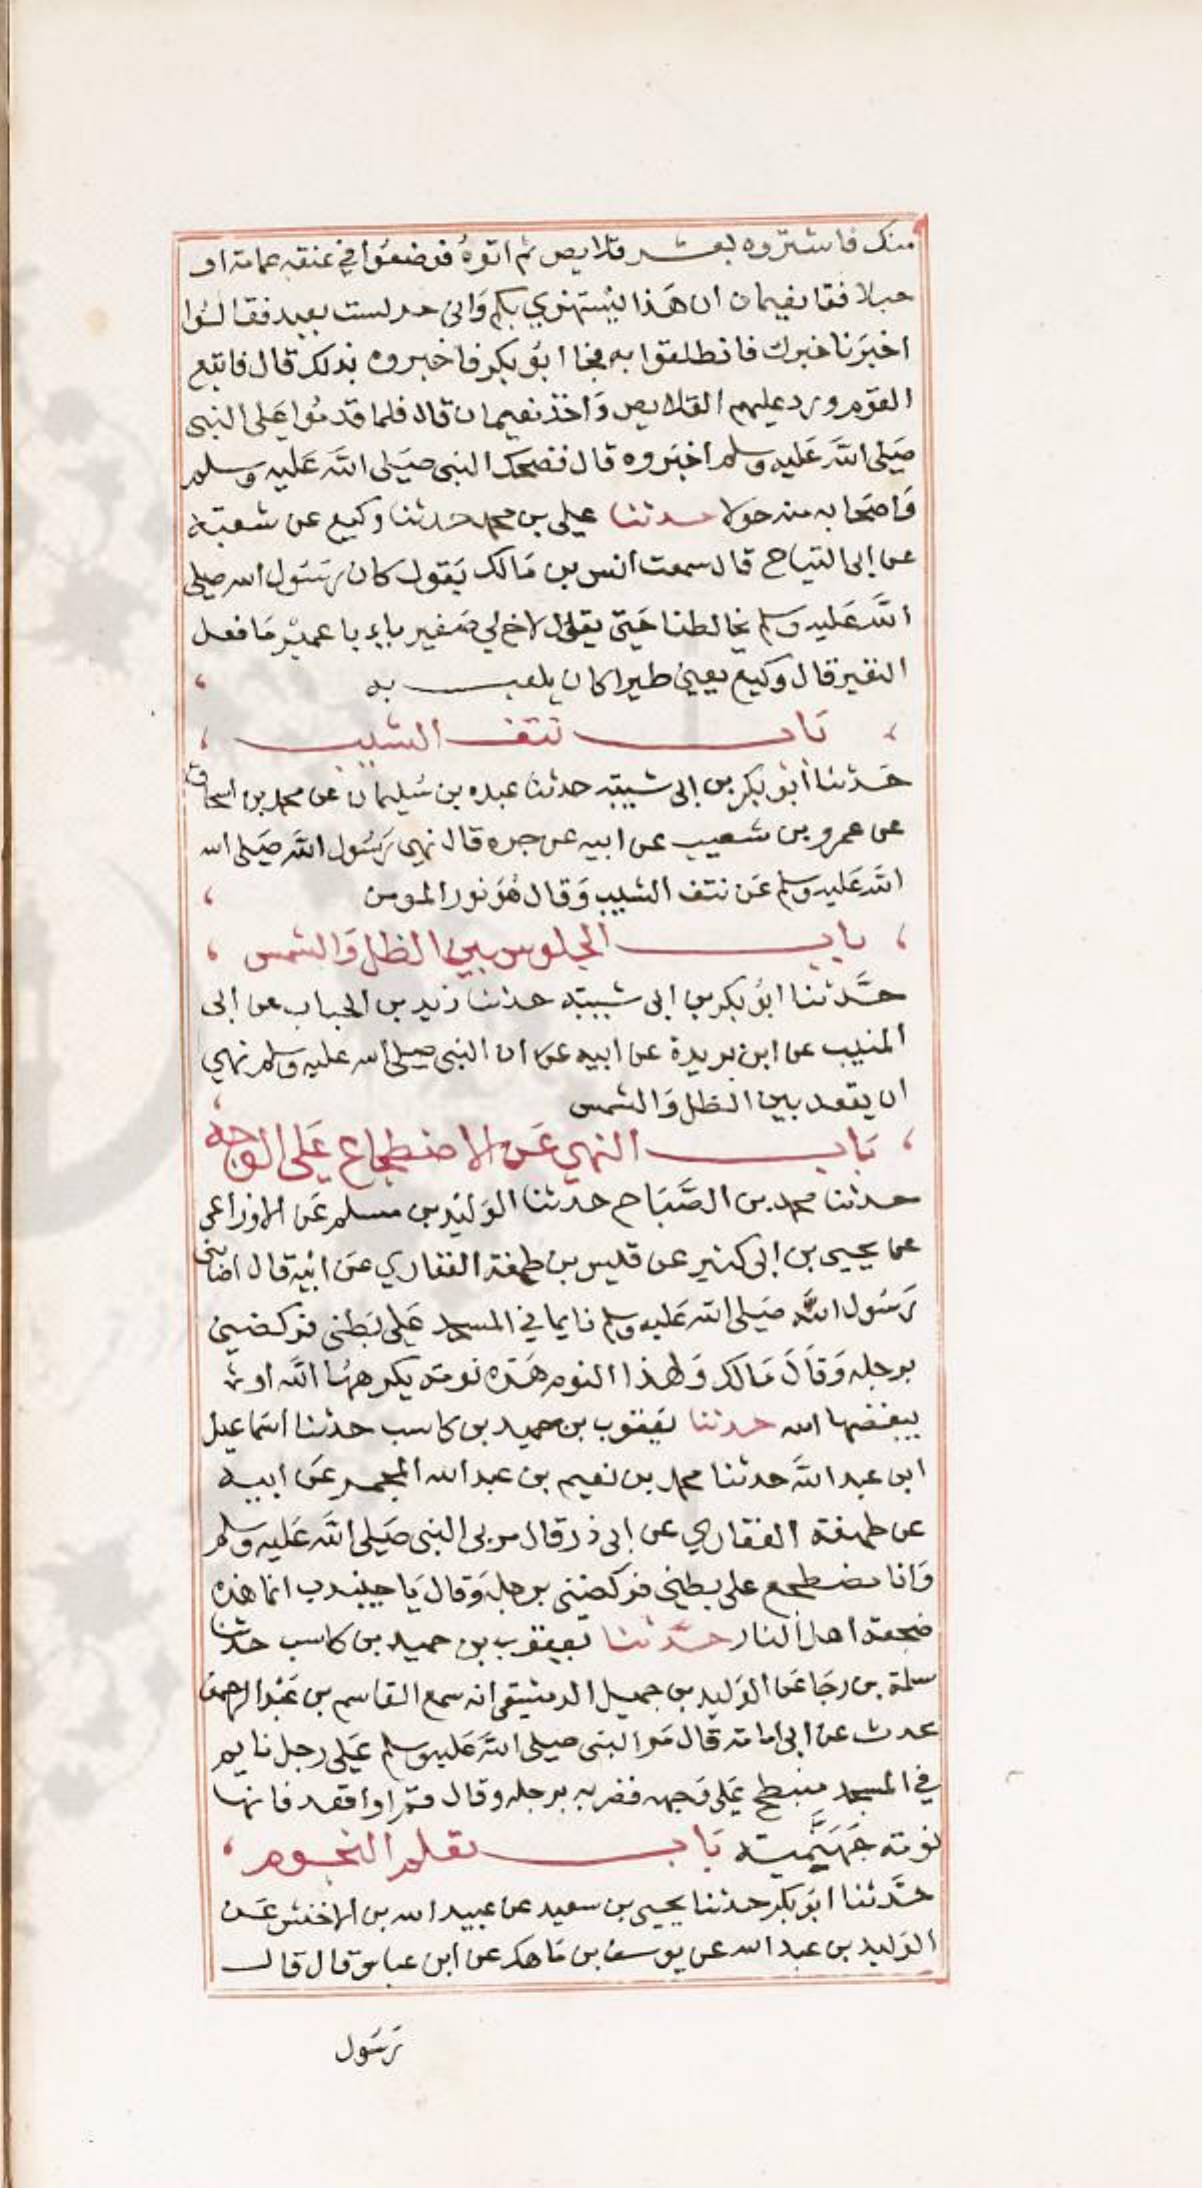 منك فاشتروه بعشر قلايص ثم اتوه فوضعوا في عنقه عمامة او
حبلا فقا نعيمان ان هذا يستهزي بكم واني حر لست بعبد فقالوا
اخبرنا خبرك فانطلقوا به فجا ابو بكر فاخبروه بذلك قال فاتبع
القوم ورد عليهم القلايص واخذ نعيمان قال فلما قدموا على النبي
صَلى الله عَليه وسلم اخبروه قال فضحك النبي صَلى الله عَليه وسلم
وَاصحابه منه حولا حدثنا علي بن محمد حدثنا وكيع عن شعبة
عن ابي التياح قال سمعت انس بن مَالك يَقول كان رسُول الله صلى
الله عَليه وسلم يخالطنا حَتى يقول لاخ لي صَغير يا با عمير مَا فعل
النغير قال وكيع يعني طيرا كان يلعب به
بَاب نتف الشيب
حَدثنا ابو بكر بن ابي شيبة حدثنا عبده بن سُليمان عن محمد بن اسحاق
عن عمرو بن شعيب عن ابيه عن جده قال نهى رَسُول الله صَلى الله
الله عَليه وسلم عَن نتف الشيب وَقال هُوَ نور المومن
باب الجلوس بين الظل وَالشمس
حَدثنا ابو بكر بن ابي شيبة حدثنا زيد بن الحباب عن ابي
المنيب عن ابن بريدة عن ابيه عن ان النبي صلى الله عليه وسلم نهي
ان يقعد بين الظل وَالشمس
بَاب النهي عَن الاضطجاع عَلى الوجه
حدثنا محمد بن الصَّبَاح حدثنا الوَليد بن مسلم عَن الاوزاعي
عن يحيى بن ابي كثير عن قيس بن طهفة الغفاري عَن ابيه قال اصابني
رَسُول الله صَلى الله عَليه وسلم نايما في المسجد عَلى بَطني فركضني
برجله وَقاَل مَالك وَلهذا النوم هَذه نومة يكرهها الله او
يبغضها الله حدثنا يَعقوب بن حميد بن كاسب حدثنا اسَماعيل
ابن عبد الله حدثنا محمد بن نعيم بن عبد الله المجمر عَن ابيه
عن طهفة الغفاري عن ابي ذر قال مر بي النبي صَلى الله عَليه وسلم
وَانا مضطجع على بطني فركضني برجله وَقال يَا جنيدب انما هذه
ضجعة اهل النار حدثنا يَعقوب بن حميد بن كاسب حدثنا
سلمة بن رجَا عَن الوَليد بن جميل الدمشقي انه سمع القاسم بن عَبد الرحمن
يحدث عن ابي امامة قال مَر النبي صلى الله عَليه وسلم عَلى رجل نايم
في المسجد منبطح عَلى وَجهه فضربه برجله وقال قم او اقعد فانها
نومة جَهَنَّمية بَاب تعلم النجوم
حَدثنا ابو بكر حدثنا يحيى بن سعيد عن عبيد الله بن الاخنس عَن
الوَليد بن عبد الله عن يوسف بن مَاهك عن ابن عباس قال قال
رَسُول